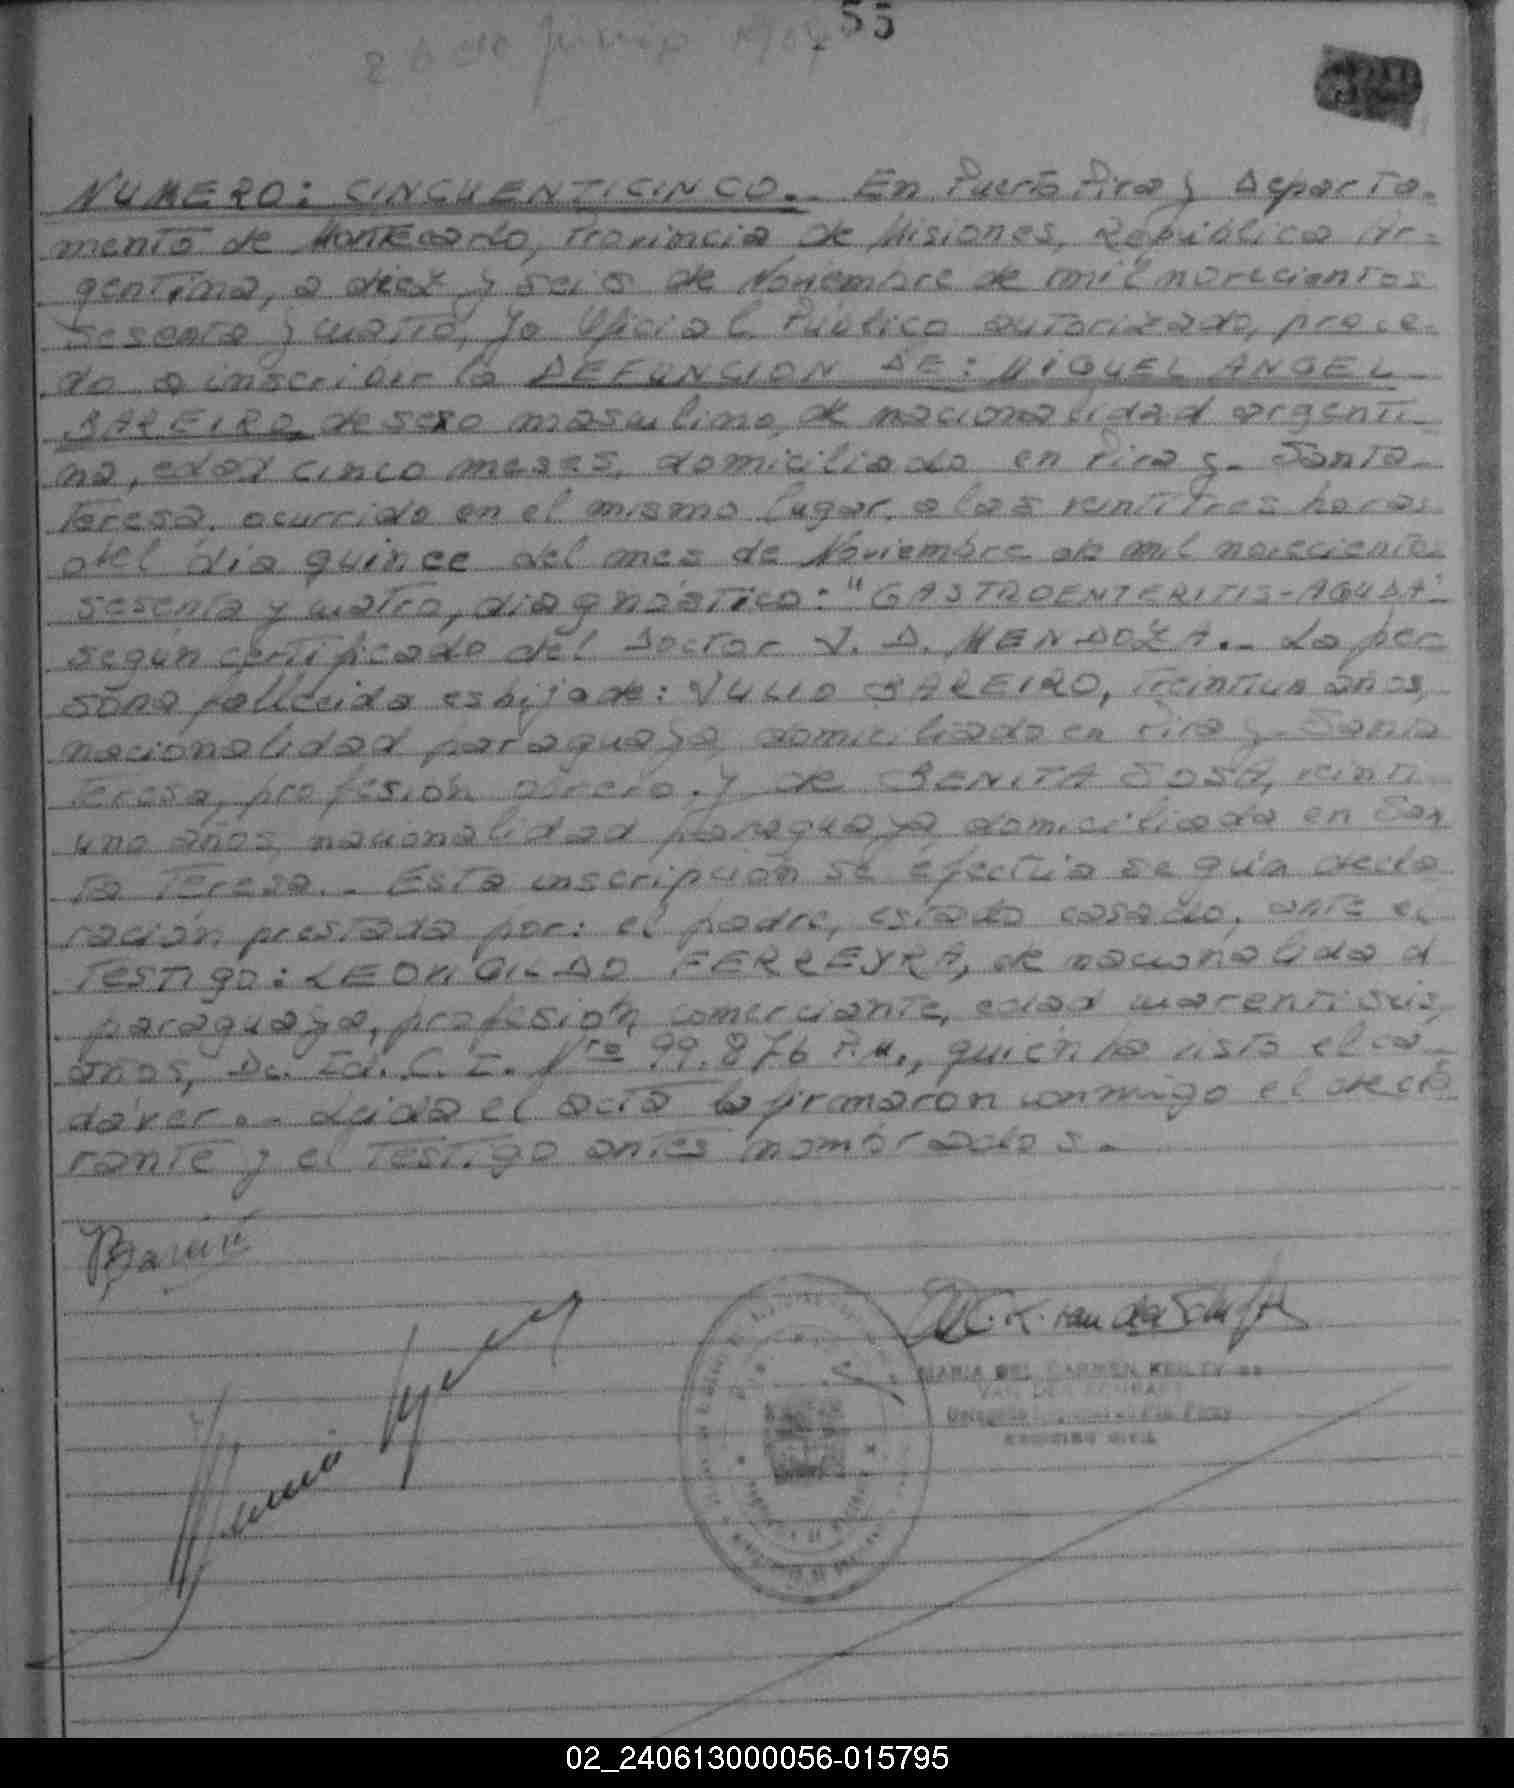 55
NUMERO: CINCUENTICINCO.- En Puerto Piray Departa-
mento de Montecarlo, Provincia de Misiones, República Ar-
gentina, a diez y seis de Noviembre de mil novecientos
sesenta y cuatro, yo Oficial Público autorizado, proce-
do a inscribir la DEFUNCION DE: MIGUEL ANGEL
BAREIRO, de sexo masculino, de nacionalidad argenti-
na, edad cinco meses, domiciliado en Piray - Santa
Teresa, ocurrido en el mismo lugar, a las veintitres horas
del día quince del mes de Noviembre de mil novecientos
sesenta y cuatro, diagnóstico: "GASTROENTERITIS-AGUDA"
según certificado del Doctor V. D. MENDOZA.- La per
sona fallecida es hija de: JULIO BAREIRO, treintiun años,
nacionalidad paraguaya, domiciliado en Piray - Santa
Teresa, profesión obrero, y de BENITA SOSA, veinti
uno años, nacionalidad paraguaya, domiciliada en San
ta Teresa.- Esta inscripción se efectúa según decla
ración prestada por: el padre, estado casado, ante el
Testigo: LEONGILDO FERREYRA, de nacionalidad
paraguaya, profesión comerciante, edad cuarentiseis,
años, Dc. Id. C. I. Nro 99.876 P.M., quién ha visto el ca-
dáver.- Leida el acta la firmaron conmigo el decla
rante y el Testigo antes nombrados.-
MARIA DEL CARMEN KEILTY de
VAN DER SCHRAFT
REGISTRO CIVIL
02_240613000056-015795